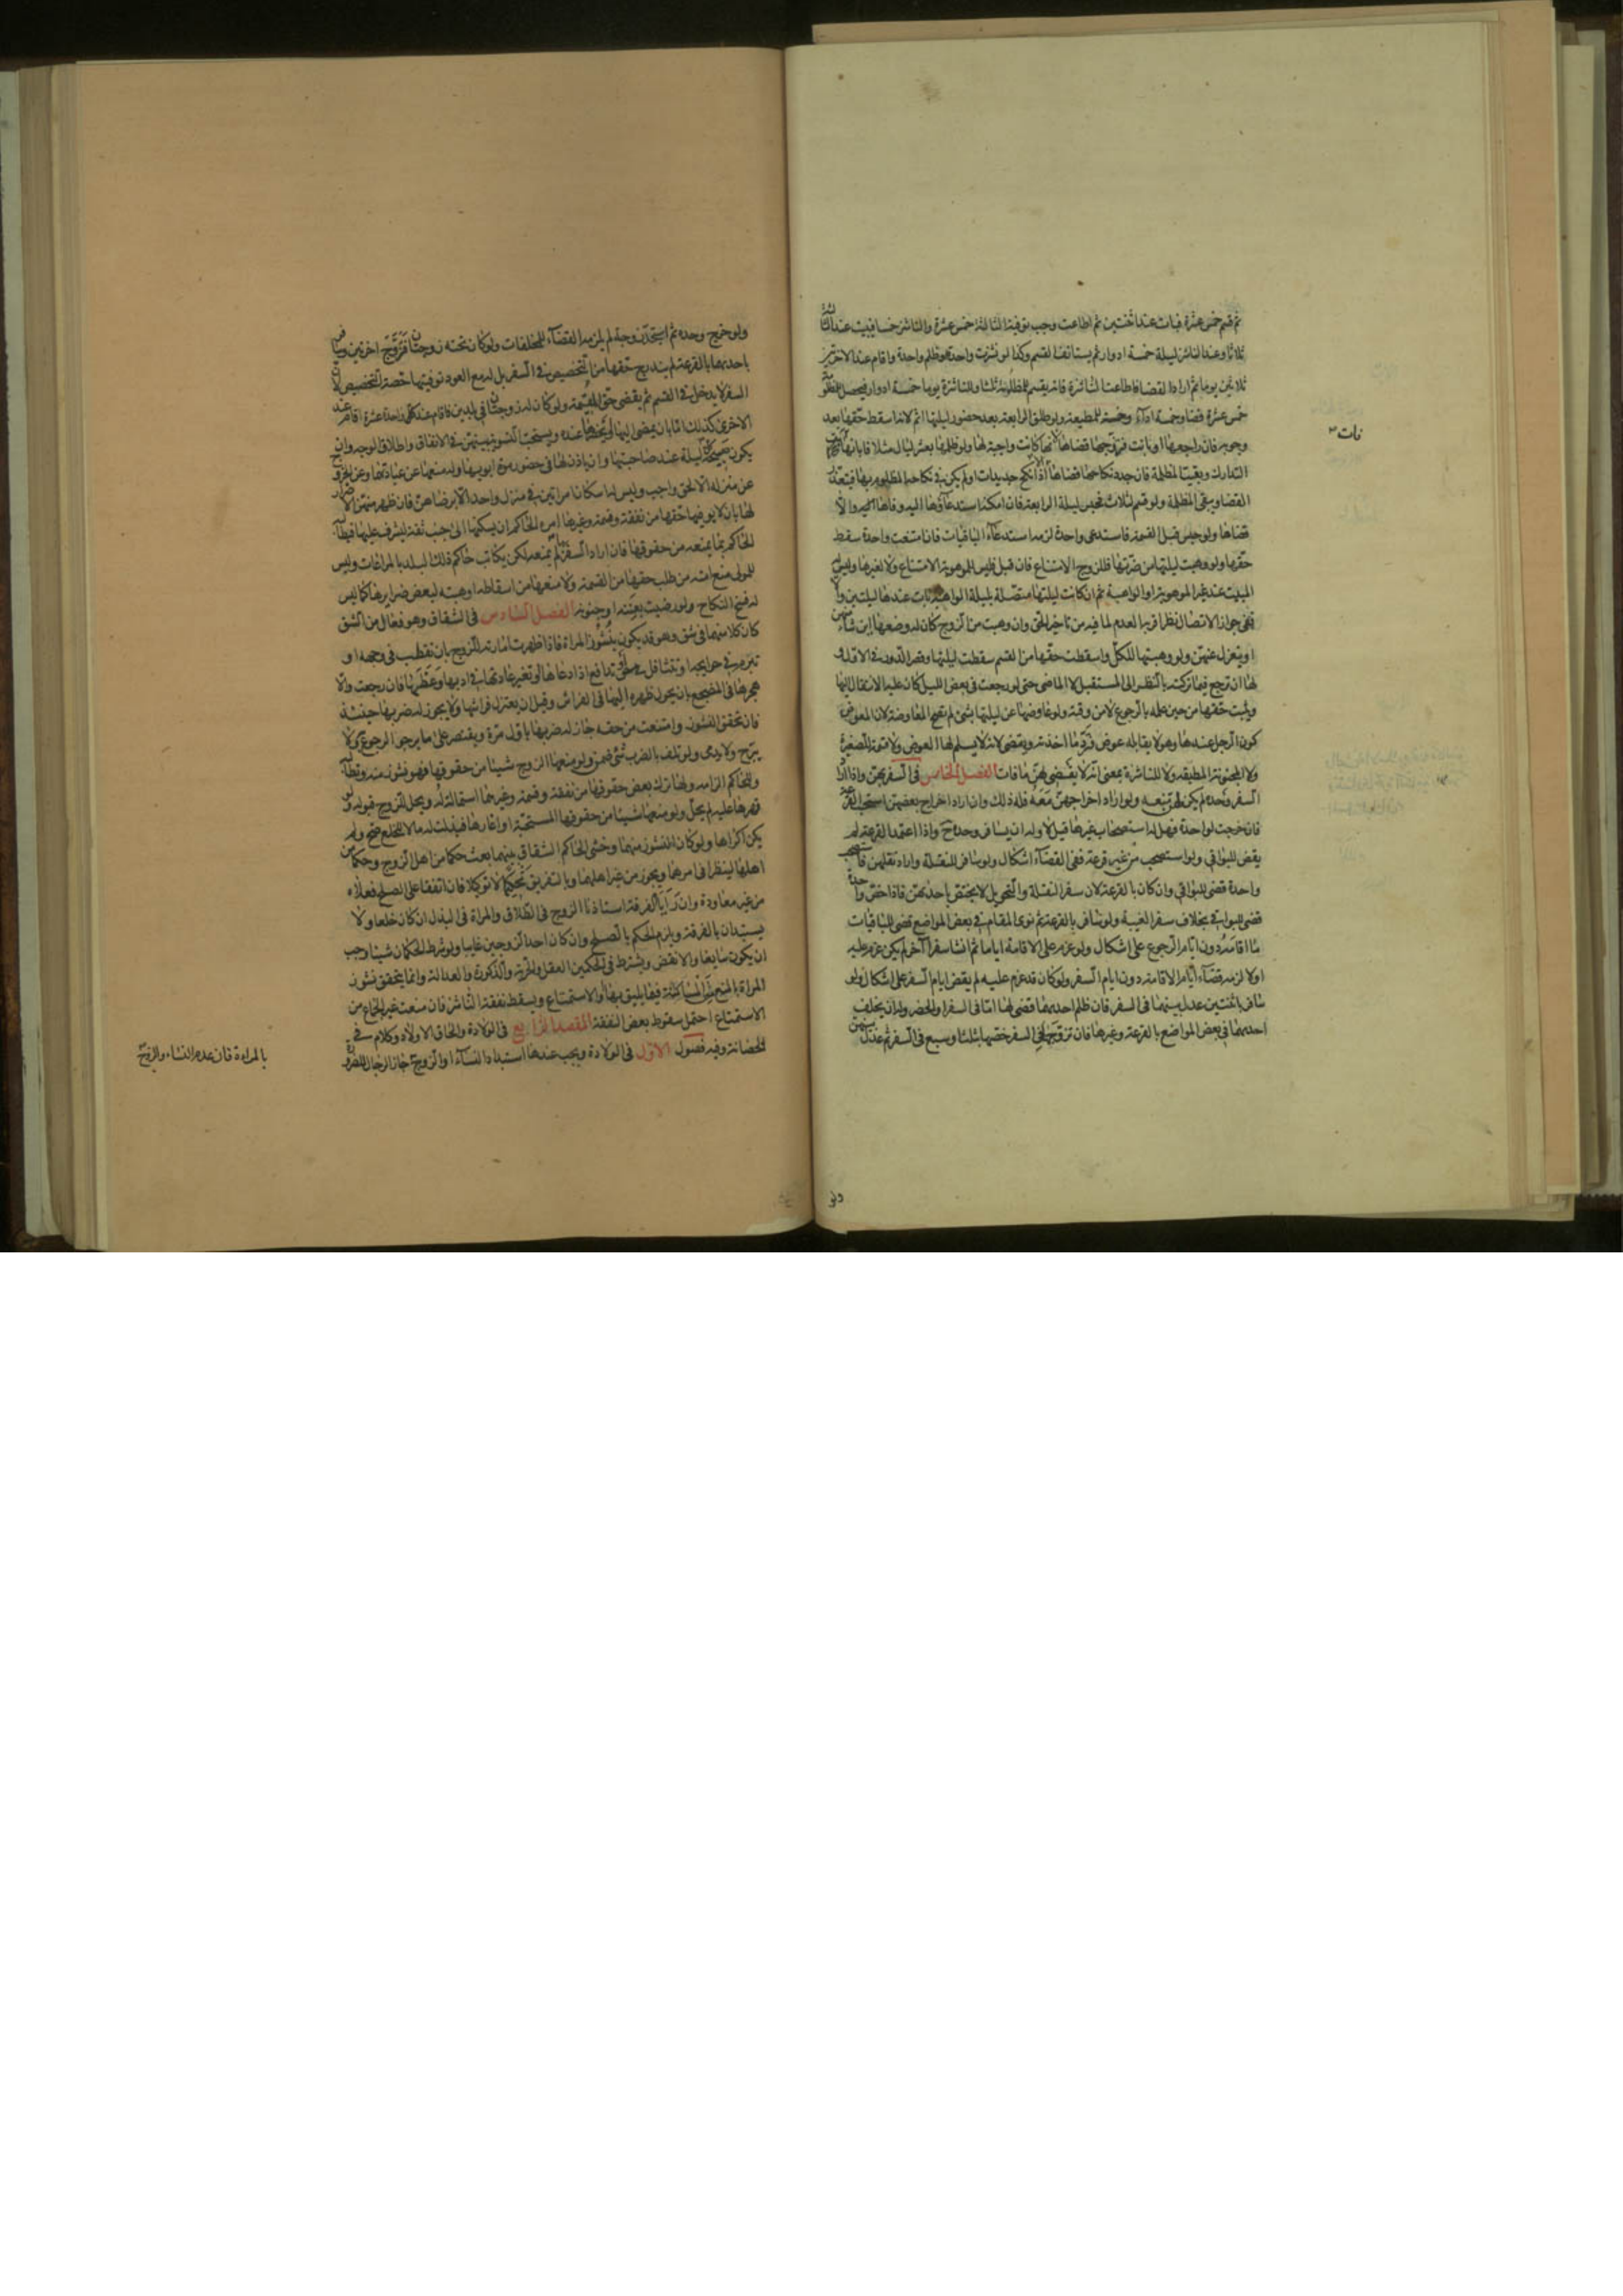 ثم قسم خمس عشرة فبات عند اثنتين ثم اطاعت وجب توفية الثالثة خمس عشرة والناشز خمسا فيبيت عند الثالثة
ثلاثا وعند الناشز ليلة خمسة ادوار ثم يستانف القسم وكذا لو نشزت واحدة وظلم واحدة واقام عند الاخرتين
ثلاثين يوما ثم اراد القضا فاطاعت الناشزة فانه يقسم للمظلومة ثلثا وللناشزة يوما خمسة ادوار فيحصل للمظلومة
خمس عشرة قضا وخمسة اداء وخمسة للمطيعة ولو طلق الرابعة بعد حضور ليلتها اثم لانه اسقط حقها بعد
وجوبه فان راجعها او بانت فتزوجها قضاها لانها كانت واجبة لها ولو ظلمها بعشر ليال مثلا فابانها
التدارك وبقيت المظلمة فان جدد نكاحها قضاها اذا نكح جديدات او لم يكن في نكاحه المظلوم بها فيتعذر
القضا وبقى المظلمة ولو قسم لثلاث فحبس ليلة الرابعة فان امكنه استدعاؤها اليه وفاها اليه والا
قضاها ولو حبس قبل القسمة فاستدعى واحدة لزمه استدعاء الباقيات فان امتنعت واحدة سقط
حقها ولو وهبت ليلتها من ضرتها فللزوج الامتناع فان قبل فليس للموهوبة الامتناع ولا لغيرها وليس
المبيت عند غير الموهوبة او الواهبة ثم ان كانت ليلتها متصلة بليلة الواهبة بات عندها ليلتين والا
ففي جواز الاتصال نظر اقربه العدم لما فيه من تاخير الحق وان وهبت من الزوج كان له وضعها اين شاء منهن
او يعتزل عنهن ولو وهبتها للكل واسقطت حقها من القسم سقطت ليلتها وقصر الدور في الاقل و
لها ان ترجع فيما تركته بالنظر الى المستقبل لا الماضي حتى لو رجعت في بعض الليل كان عليه الانتقال اليها
ويثبت حقها من حين علمه بالرجوع لا من وقته ولو عاوضها عن ليلتها بشئ لم تصح المعاوضة لان المعوض
كون الرجل عندها وهو لا يقابله عوض فترد ما اخذته ويقضى لانه لا يسلم لها العوض ولا قسمة للصغيرة
ولا المجنونة المطبقة ولا للناشزة بمعنى انه لا يقضى لهن ما فات الفصل الخامس في السفر بهن واذا اراد
السفر وحده لم يكن لهن تبعه ولو اراد اخراجهن معه فله ذلك وان اراد اخراج بعضهن استحب القرعة
فان خرجت لواحدة فهل له استصحاب غيرها قيل لا وله ان يسافر وحده ح واذا اعتمد القرعة لم
يقض للبواقي ولو استصحب من غير قرعة ففي القضاء اشكال ولو سافر للنقلة واراد نقلهن فاستصحب
واحدة قضى للبواقي وان كان بالقرعة لان سفر النقلة والتحويل لا يختص باحدهن فاذا خص واحدة
قضى للبواقي بخلاف سفر الغيبة ولو سافر بالقرعة ثم نوى المقام في بعض المواضع قضى للباقيات
ما اقامه دون ايام الرجوع على اشكال ولو عزم على الاقامة اياما ثم انشا سفرا آخر لم يكن عزم عليه
اولا لزمه قضاء ايام الاقامة دون ايام السفر ولو كان قد عزم عليه لم يقض ايام السفر على اشكال ولو
سافر باثنتين عدل بينهما في السفر فان ظلم احديهما قضى لها اما في السفر او الحضر وله ان يخلف
احديهما في بعض المواضع بالقرعة وغيرها فان تزوج في السفر خصها بثلث او سبع في السفر ثم عدل بينهن
فات
ولو خرج وحده ثم استجد زوجة لم يلزمه القضاء للمخلفات ولو كان تحته زوجتان فتزوج اخرتين وسافر
باحديهما بالقرعة لم يندرج حقها من التخصيص في السفر بل له مع العود توفيتها حصة التخصيص لان
السفر لا يدخل في القسم ثم يقضى حق المقيمة ولو كان له زوجتان في بلدين فاقام عند كل واحدة عشرة اقام عند
الاخرى كذلك اما بان يمضى اليها او يحضرها عنده ويستحب التسوية بينهن في الانفاق واطلاق الوجه وان
يكون صبيحة كل ليلة عند صاحبتها وان ياذن لها في حضور موت ابويها وله منعها عن عيادتهما وعن الخروج
عن منزله الا لحق واجب وليس له اسكان امراتين في منزل واحد الا برضاهن فان ظهر منه الاضرار
لها بان لا يوفيها حقها من نفقة وقسمة وغيرها امره الحاكم ان يسكنها الى جنب ثقة ليشرف عليها فيطالبه
الحاكم بما يمنعه من حقوقها فان اراد السفر لم يمنعه لكن يكاتب حاكم ذلك البلد بالمراعات وليس
للمولى منع امته من طلب حقها من القسمة ولا منعها من اسقاطه او هبته لبعض ضرايرها كما ليس
له فسخ النكاح ولو رضيت بعنته او جنونه الفصل السادس في الشقاق وهو فعال من الشق
كان كلا منهما في شق وهو قد يكون بنشوز المراة فاذا ظهرت امارته للزوج بان تقطب في وجهه او
تتبرم في حوايجه او تتثاقل وتدافع اذا دعاها او تغير عادتها في ادبها وعظها فان رجعت والا
هجرها في المضجع بان يحول ظهره اليها في الفراش وقيل ان يعتزل فراشها ولا يجوز له ضربها حينئذ
فان تحقق النشوز وامتنعت من حقه جاز له ضربها باول مرة ويقتصر على ما يرجو الرجوع به ولا
يبرح ولا يدمى ولو تلف بالضرب شئ ضمن ولو منعها الزوج شيئا من حقوقها فهو نشوز منه وتطالبه
وللحاكم الزامه ولها ترك بعض حقوقها من نفقة وقسمة وغيرهما استمالة له ويحل للزوج قبوله ولو
قهرها عليه لم يحل ولو منعها شيئا من حقوقها المستحبة او اغارها فبذلت له مالا للخلع صح ولم
يكن اكراها ولو كان النشوز منهما وخشى الحاكم الشقاق بينهما بعث حكما من اهل الزوج وحكما من
اهلها لينظرا في امرهما ويجوز من غير اهلهما وبالتفريق تحكيما لا توكيلا فان اتفقا على الصلح فعلاه
من غير معاودة وان رايا الفرقة استاذنا الزوج في الطلاق والمراة في البذل ان كان خلعا ولا
يستبدان بالفرقة ويلزم الحكم بالصلح وان كان احد الزوجين غايبا ولو شرط الحكمان شيئا وجب
ان يكون سايغا والا نقض ويشترط في الحكمين العقل والحرية والذكورة والعدالة وانما يتحقق نشوز
المراة بالمنع من المساكنة فيما يليق بها او الاستمتاع ويسقط نفقة الناشز فان منعت غير الجماع من
الاستمتاع احتمل سقوط بعض النفقة المقصد الرابع في الولادة والحاق الاولاد وكلام في
الحضانة وفيه فصول الاول في الولادة ويجب عندها استبداد النساء او الزوج
بالمراة فان عدم النساء والزوج